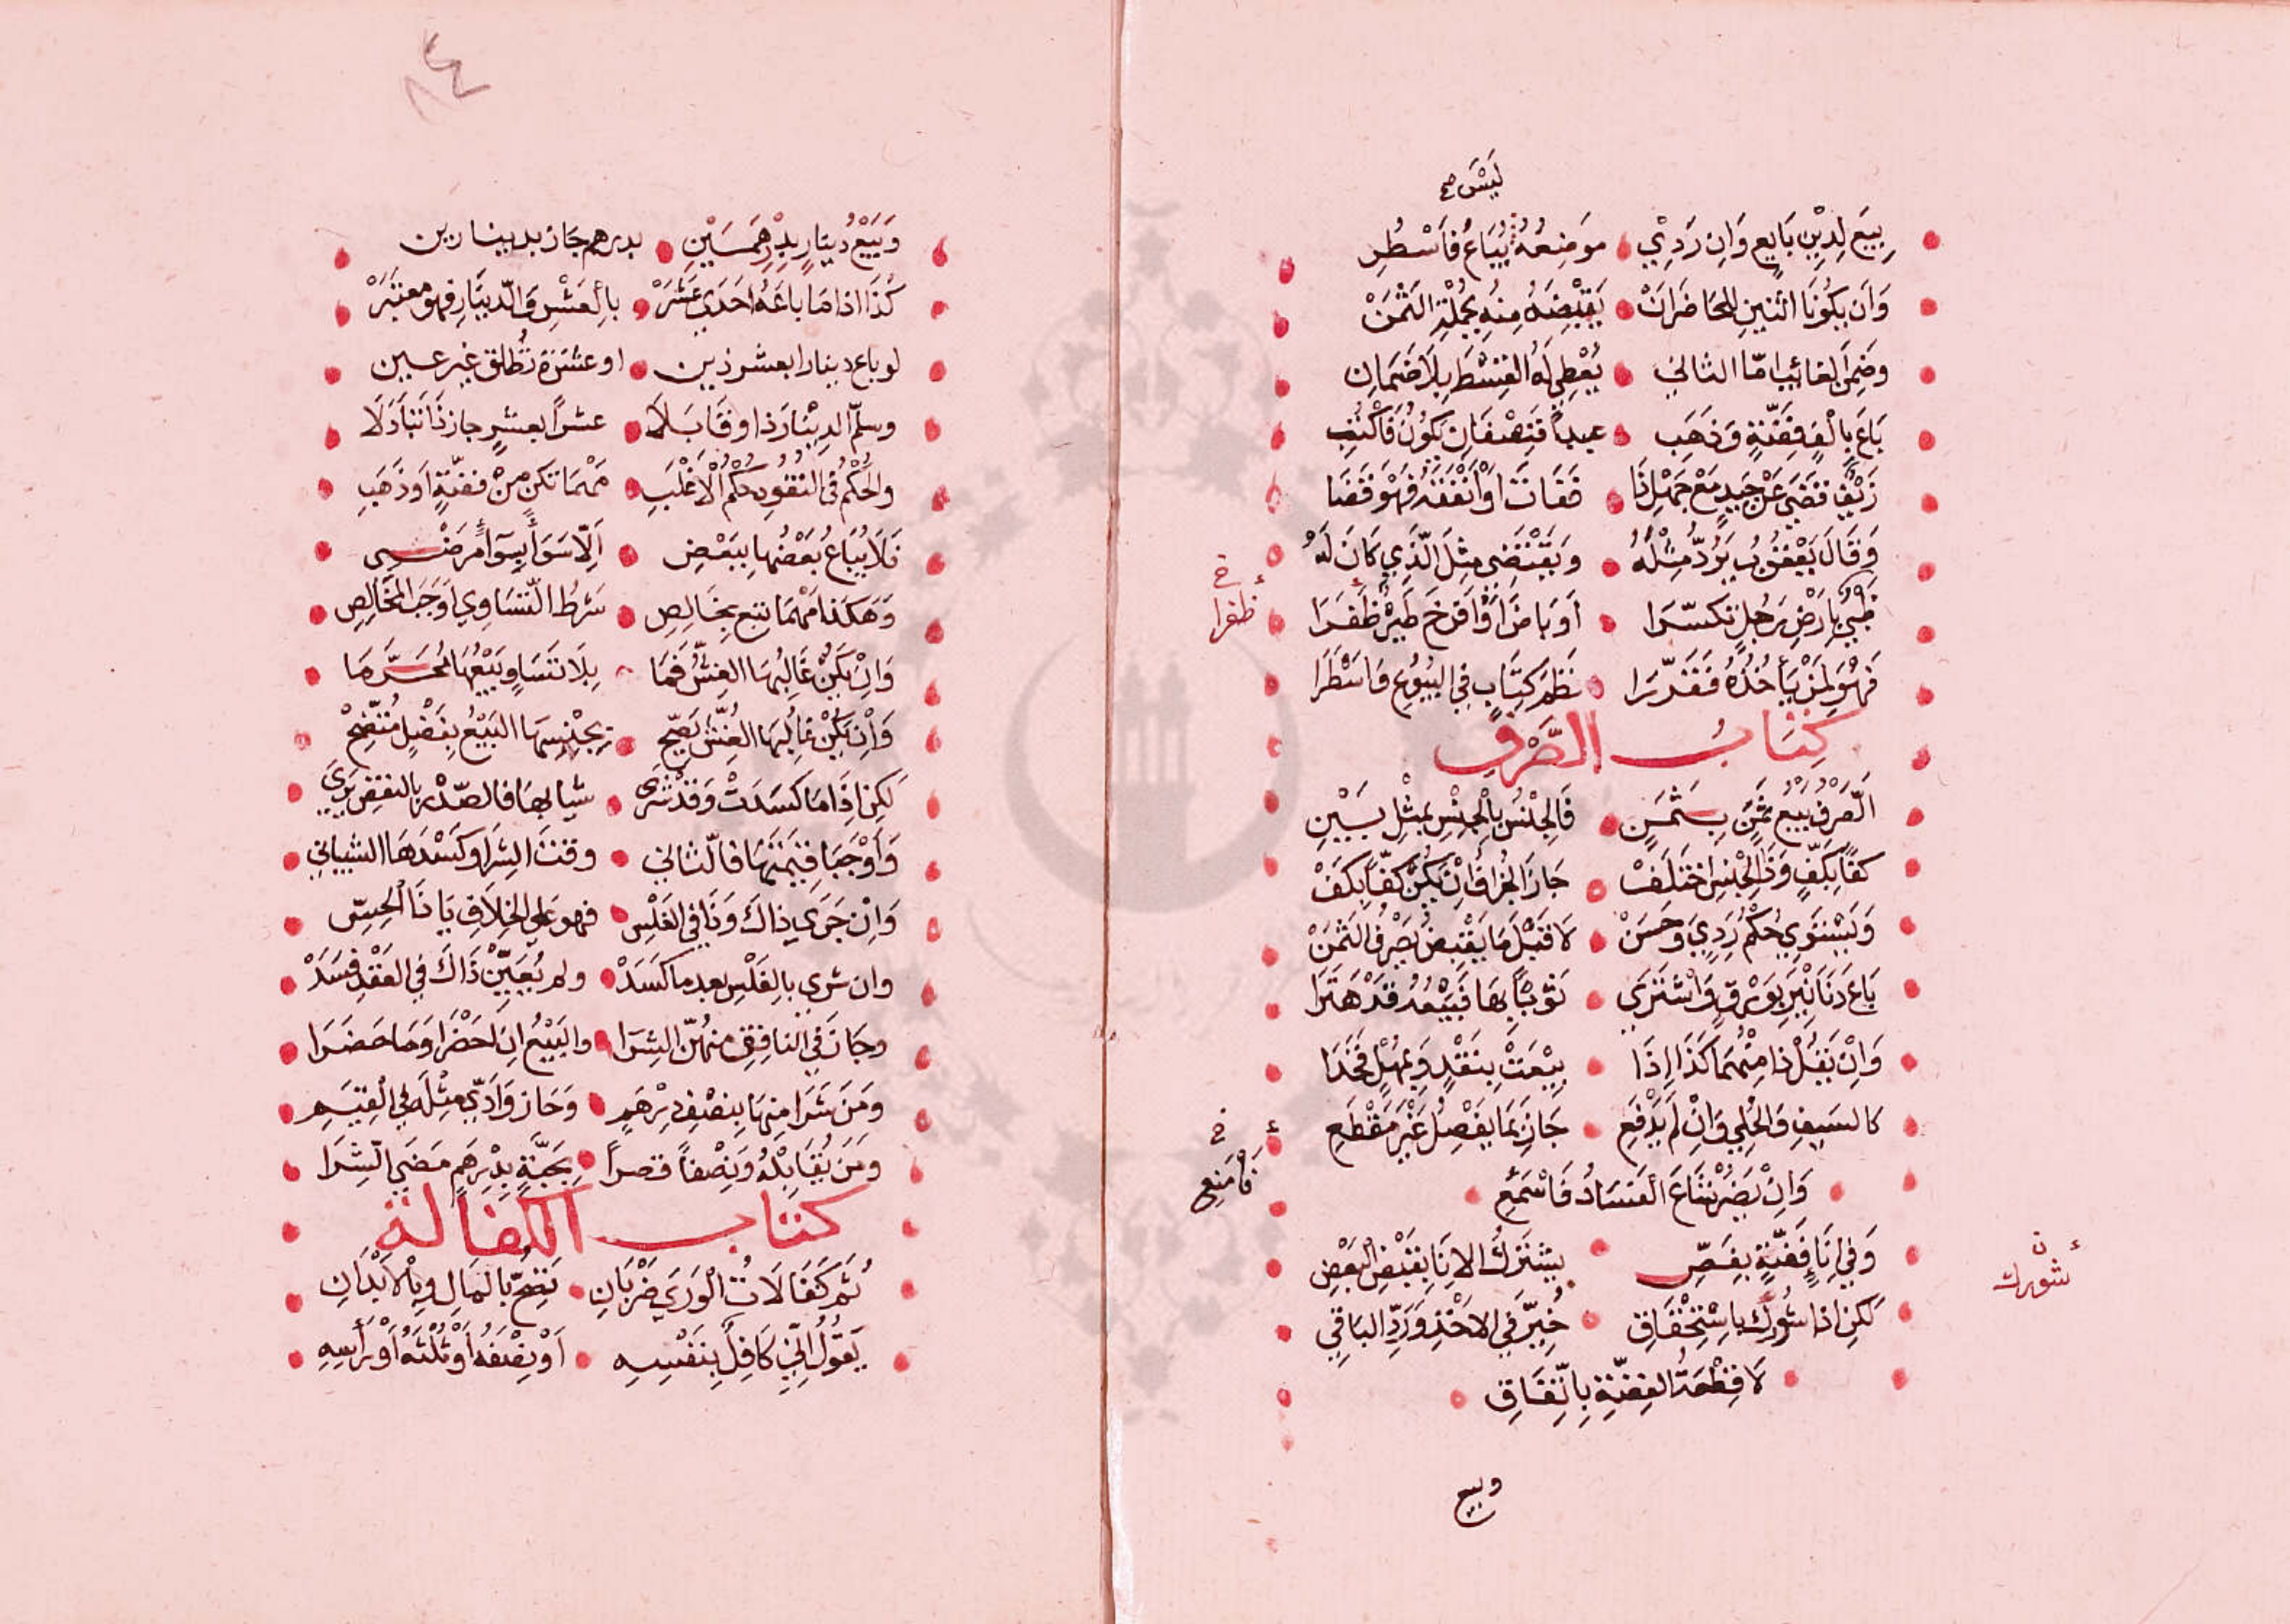 لَيْسَ صح
بِيعَ لِدِيْنِ بَايِعٍ وَاِنْ رَدِيْ مَوضِعُهُ يُبَاعُ فَاَسْطُرِ
وَاَن يَكُونَا اثنينِ لِلحَاضَرَانْ يَقْبِضَهُ مِنْهِ بِجُملَةِ الثَمَنْ
وضَمِنَ الغائِب امّا الثاني يُعْطِي لَهُ القِسْطَ بِلَا ضَمَانِ
بَاعَ بِاَلْفِ فِضَّةٍ وَذَهَبِ عبداً فَنِصْفَانِ يَكُونُ فَاكْتُبِ
زَيْفٍ قَضَي عَنْ جَيِدٍ مَعْ جَهْلِ ذَا فَفَاتَ اَوْ اَنْفَقَهُ فَهْوَ قَضَا
وَقَالَ يَعْقُوبُ يَرُدُّ مِثْلَهُ وَيَقْتَضِي مِثلَ الَّذِي كَانَ لَهْ
ظَبْيٌ بِاَرضِ رَجُلٍ تَكَسّرَا اَو بَاضَ اَوْ اَفْرَخَ طَيْرٌ ظَفَرَا
خ ظفرا
فَهْوَ لِمَنْ يَأخُذُهُ فَقَدّرَا نَظمَ كِتَابٍ فِي البُيُوعِ مَا سَطَرَا
كِتَابُ الصَّرْفِ
الَصَّرْفُ بَيْعُ ثَمَنٍ بِثَمَنٍ فَالجِنْسُ بِالْجِنْسِ بِمِثْلٍ بَيّنِ
كفّاً بِكَفٍّ وَذَا الجِنْسِ اخْتَلَفْ جَازَ الجُزافُ اِنْ يَكُنْ كَفّاً بِكَفْ
وَيَسْتَوِي حُكْمُ رَدِيٍّ وَحَسَنْ لَا قَبْلَ مَا يَقْبِضُ يَصْرِفُ الثَمَنْ
بَاعَ دَنَانِيرَ بِوَرْقٍ وَاشْتَرَي ثَوباً بِهَا فَبَيْعُهُ قَدْ هَتَرَا
وَاِنْ يَقُلْ ذا مِنْهُمَا كَذَا اِذَا بِيْعَتْ بِنَقْدٍ وَبِمُهْلٍ فَخُذَا
كالسَيفِ وَالحُلِي وَاِنْ لَم يَدْفَعِ جَازَ بِمَا يَفْصِلُ غَيْرَ مَقْطَعِ
خ فَامْنَعِ
وَاِنْ يَضُرْ شَاعَ الفَسَادُ فَاسْمَعِ
وَفِي اِنَا فِضَّةٍ بِفَصِّ يشتَرِكُ الانَا بِقَبْضِ الْبَعْضِ
ن شورك
لَكِن اذا شُورِكَ باسْتِحْقَاقِ خُيِّرَ فِي الاَخْذِ وَرَدِّ البَاقِي
لَا قِطْعَةُ الفِضَّةِ بِاتِّفَاقِ
وبيع
٨٤
وَبَيْعُ دُينَارٍ بِدِرْهَمَيْنِ بدرهم جَاز بدينارين
كَذَا اذا مَا باعَهُ احَدَي عَشَرْ بِالْعَشْرِ وَالدّينَارِ فهو معتبَرْ
لو باع دينارا بعشر ذين او عشرة تُطلق غير عين
وسلّم الدينَارَ ذا وقَابَلَا عشراً بعشرٍ جاز ذَا تَبَادَلَا
والحُكْمُ فِي النقُودِ حُكمُ الْاَغْلَبِ مَهْمَا تكن مِنْ فضّةٍ اَو ذَهَبِ
فَلَا يُبَاعُ بَعْضُهَا بِبَعْضِ اَلّا سَوَاً بِسِوَاً مَرضي
وَهَكَذَا مَهْمَا تبع بِخَالِصِ شَرطُ التّسَاوِي اَوجَبَ المخَالِصِ
وَاِنْ يَكُنْ غَالِبُهَا الغِشُّ فَمَا بِلَا تسَاوٍ بَيْعُهَا مُحَرَّمَا
وَاِنْ يَكُنْ غالِبُهَا الغِشُّ يَصِحّ بِجْنِسِهَا البَيْعُ بِفَضْلٍ مُتّضِحْ
لَكِن اذَا مَا كَسَدَتْ وَقَدْ شَرَى شيا بها فالصّدْرُ بالنقض يَرَي
وَاَوْجَبَا قِيمَتَهَا فالثاني وقتَ الشِرَا وكَسْدهَا الشيباني
وَاِنْ جَرَي ذاكَ وَذَا فِي الفَلْسِ فهو عَلي الخِلَافِ يَا ذَا الْحِسّ
وان شري بالفَلْسِ بعد ما كَسَدْ ولم يُعَيِّنْ ذَاكَ فِي العَقْدِ فسَدْ
وجَازَ فِي النافِقِ منهُنّ الشِرَا والبَيْعُ اِن اَحضْرَا وَمَا حَضَرَا
ومَنْ شَرَا مِنهَا بِنصْفِ دِرْهَمٍ وَحَاز وَاَدّي مِثْلَهُ فِي الْقِيَمِ
ومَنْ يُقَابِلْهُ وَنِصْفاً قصراً بِحَبّةٍ بِدْرِهَمٍ مَضَي الشِرَا
كتاب الكفالة
ثُمَّ كَفَالَاتُ الْوَرَي ضَرْبَانِ تَصِحُّ بالمَالِ وبالاَبْدَانِ
يَقُولُ اِنِّي كَافِلٌ بِنَفْسِهِ اَوْ نِصْفَهُ اَوْ ثُلْثَهُ اَوْ رَأْسِهِ